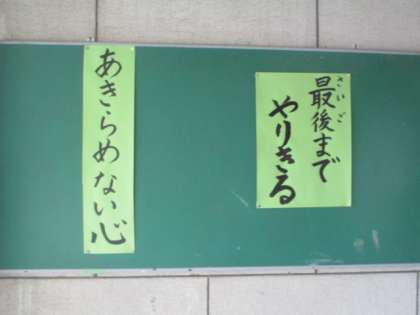 最後まで
さいご
やりきる
あきらめない心